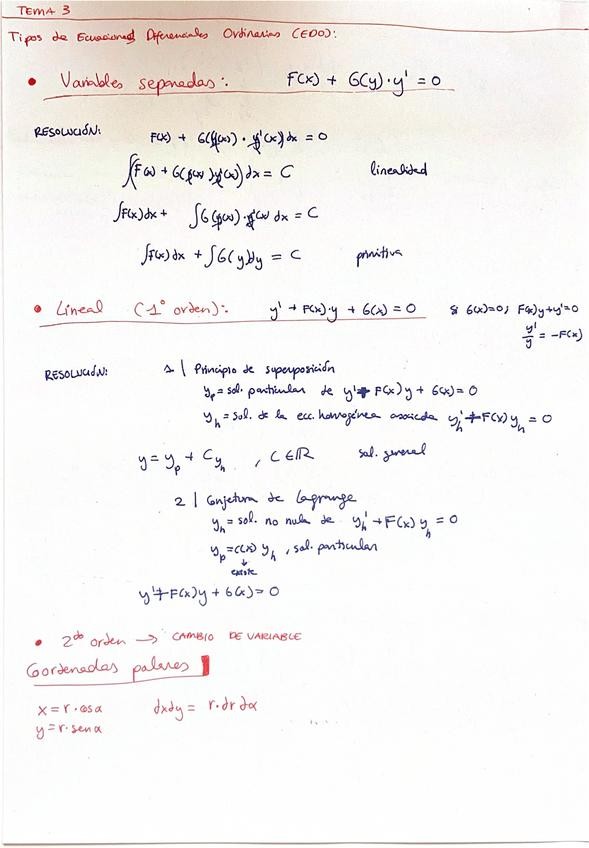 TEMA 3
Tipos de Ecuaciones Diferenciales Ordinarias (EDO):
• Variables separadas: F(x) + G(y)·y' = 0
RESOLUCIÓN:
F(x) + G(y(x))·y'(x) dx = 0
∫(F(x) + G(y(x))y'(x)) dx = C linealidad
∫F(x)dx + ∫G(y(x))·y'(x) dx = C
∫F(x)dx + ∫G(y)dy = C primitiva
• Lineal (1º orden): y' + F(x)·y + G(x) = 0 si G(x)=0; F(x)y+y'=0
y'/y = -F(x)
RESOLUCIÓN: 1 | Principio de superposición
y_p = sol. particular de y' + F(x)y + G(x) = 0
y_h = sol. de la ecc. homogénea asociada y_h' + F(x)y_h = 0
y = y_p + Cy_h , C∈ℝ sol. general
2 | Conjetura de Lagrange
y_h = sol. no nula de y_h' + F(x)y_h = 0
y_p = C(x) y_h , sol. particular
↓
existe
y' + F(x)y + G(x) = 0
• 2do orden → CAMBIO DE VARIABLE
Coordenadas polares
x = r·cosα dxdy = r·dr dα
y = r·senα